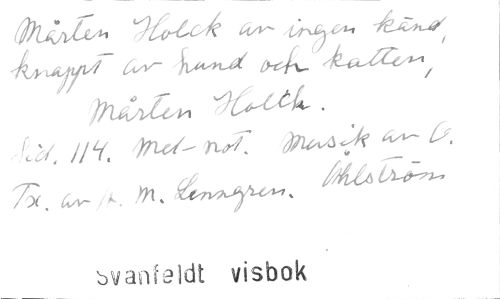 Mårten Holck av ingen känd,
knappt av hund och katten,
Mårten Holck.
Sid. 114. Mel-not. Musik av O.
Tx. av A. M. Lenngren. Åhlström
Svanfeldt visbok